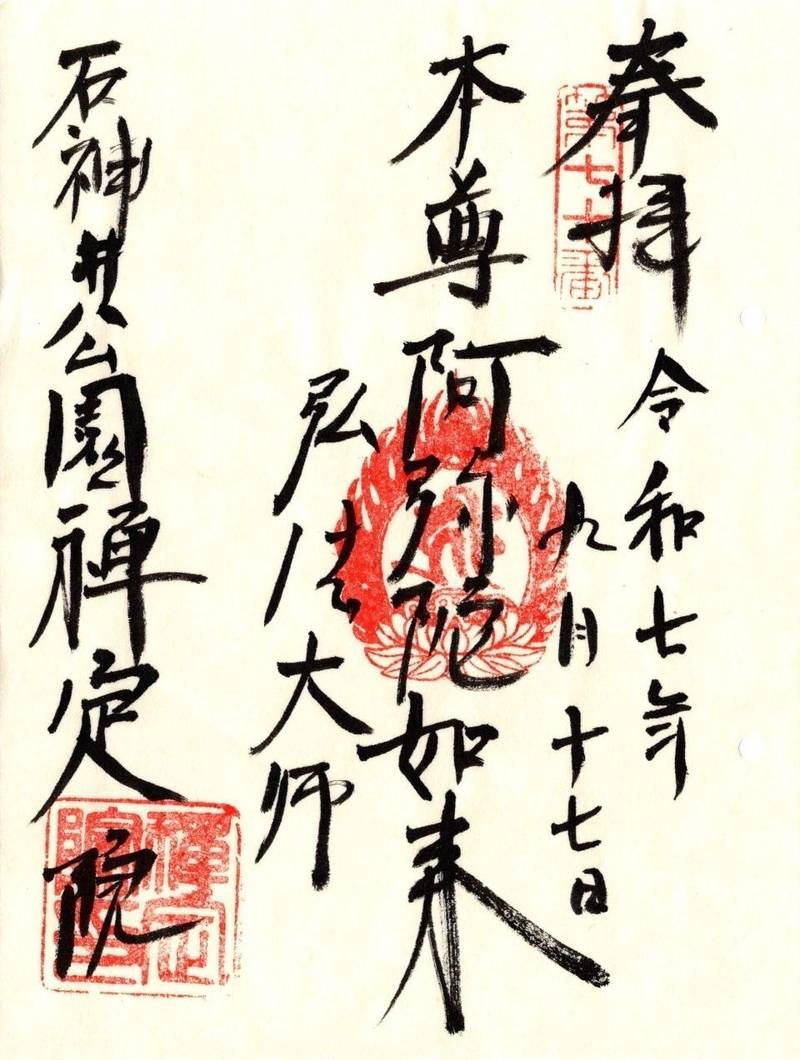 奉拝
第七十番
令和七年
九月十七日
本尊 阿弥陀如来
弘法大師
石神井公園禅定院